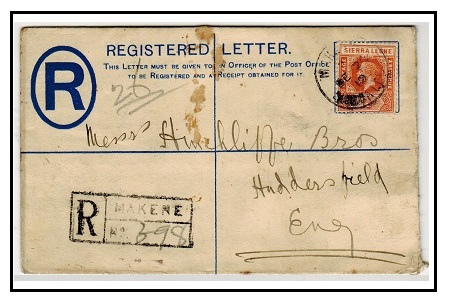 REGISTERED LETTER.
THIS LETTER MUST BE GIVEN TO AN OFFICER OF THE POST OFFICE
TO BE REGISTERED AND A RECEIPT OBTAINED FOR IT.
R
SIERRA LEONE
POSTAGE
Messrs Hinchliffe Bros
Huddersfield
Eng
R
MAKENE
No. 398